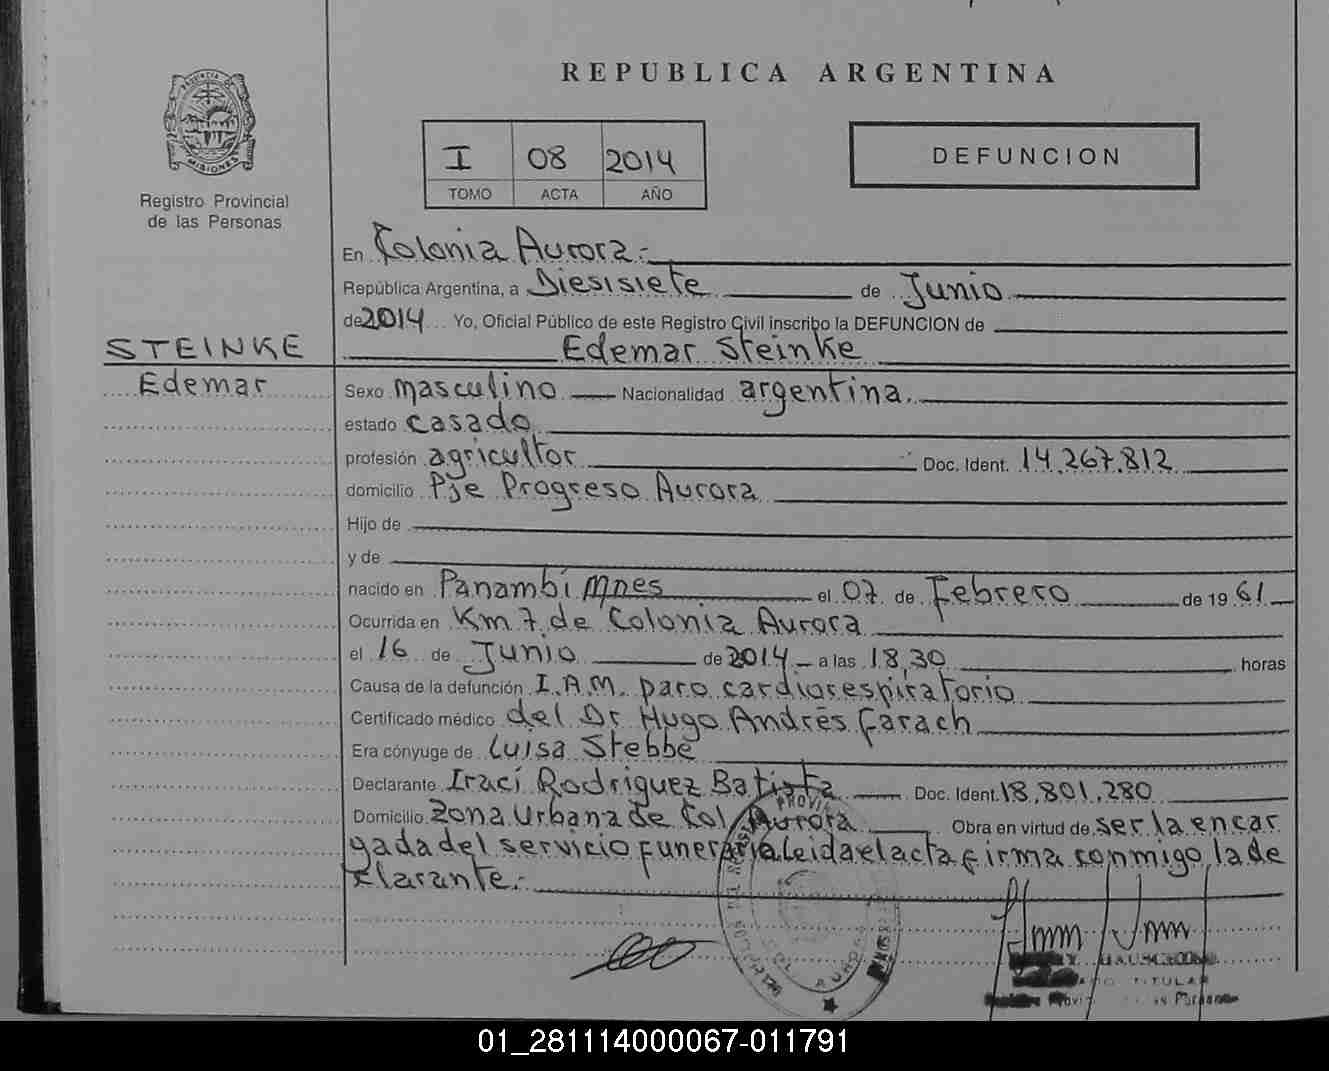 REPUBLICA ARGENTINA
PROVINCIA DE MISIONES
Registro Provincial
de las Personas
I 08 2014
TOMO ACTA AÑO
DEFUNCION
En Colonia Aurora.-
República Argentina, a Diesisiete de Junio
de 2014 Yo, Oficial Público de este Registro Civil inscribo la DEFUNCION de
STEINKE
Edemar Steinke
Edemar
Sexo masculino Nacionalidad argentina.
estado casado
profesión agricultor Doc. Ident. 14.267.812
domicilio Pje Progreso Aurora
Hijo de
y de
nacido en Panambí Mnes el 07 de Febrero de 1961
Ocurrida en Km 7 de Colonia Aurora
el 16 de Junio de 2014 a las 18,30 horas
Causa de la defunción I.A.M. paro cardiorespiratorio
Certificado médico del Dr Hugo Andrés Farach
Era cónyuge de Luisa Stebbe
Declarante Iraci Rodriguez Batista Doc. Ident. 18.801.280
Domicilio Zona Urbana de Col Aurora Obra en virtud de ser la encar
gada del servicio funeraria Leida el acta firma conmigo la de
clarante.-
TITULAR
01_281114000067-011791